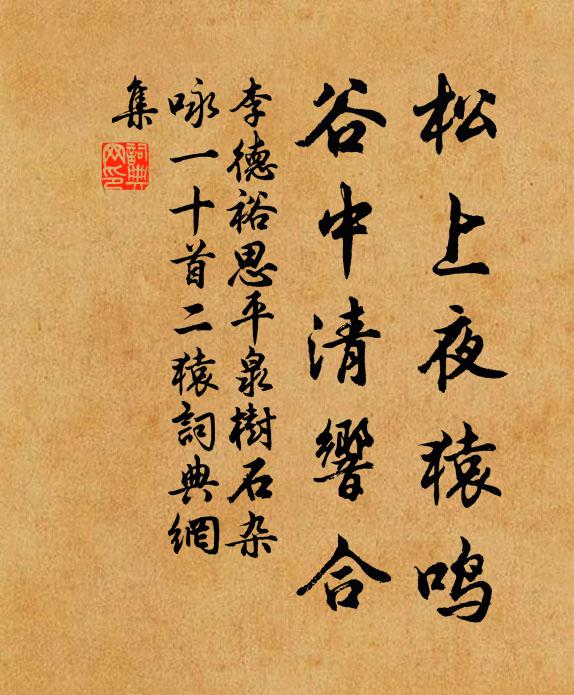 松上夜猿鸣
谷中清響合
李德裕思平泉樹石杂
咏一十首二猿詞典網
集
詞典
网印